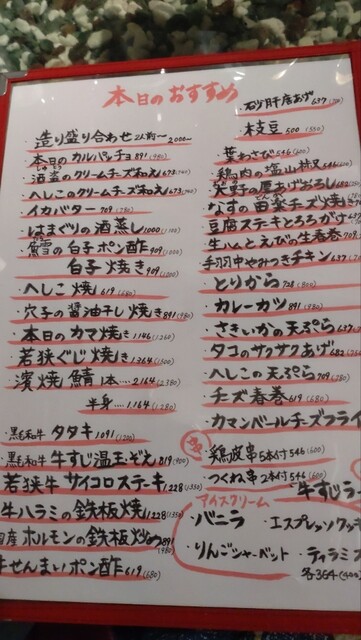 本日のおすすめ
造り盛り合わせ 2人前〜 2000〜
本日のカルパッチョ 891(980)
酒盗のクリームチーズ和え 673(740)
へしこのクリームチーズ和え 673(740)
イカバター 709(780)
はまぐりの酒蒸し 1000(1100)
鱈の白子ポン酢 909(1000)
白子焼き 909(1000)
へしこ焼 619(680)
穴子の醤油干し焼き 891(980)
本日のカマ焼き 1.146(1260)
若狭ぐじ焼き 1.364(1500)
濱焼鯖 1本… 2.164(2380)
半身…1.164(1280)
黒毛和牛 タタキ 1.091(1200)
黒毛和牛 牛すじ温玉ぞえ 819(900)
若狭牛サイコロステーキ 1.228(1350)
牛ハラミの鉄板焼 1.228(1350)
国産ホルモンの鉄板焼 891(980)
牛せんまいポン酢 619(680)
・砂肝唐あげ 637
・枝豆 500(550)
葉わさび 546(600)
鶏肉の塩山椒
厚あげおろし
なすの田楽チーズ焼
豆腐ステーキとろろがけ 637
生ハムとえびの生春巻 709
手羽中やみつきチキン 637
とりから 728(800)
カレーカツ 891(980)
さきいかの天ぷら 637
タコのサクサクあげ 682
へしこの天ぷら 709(780)
チーズ春巻 619(680)
カマンベールチーズフライ
鶏皮串 5本付 546(600)
つくね串 2本付 546(600)
牛すじ
アイスクリーム
・バニラ ・エスプレッソクッ
・りんごシャーベット ・ティラミス
各364